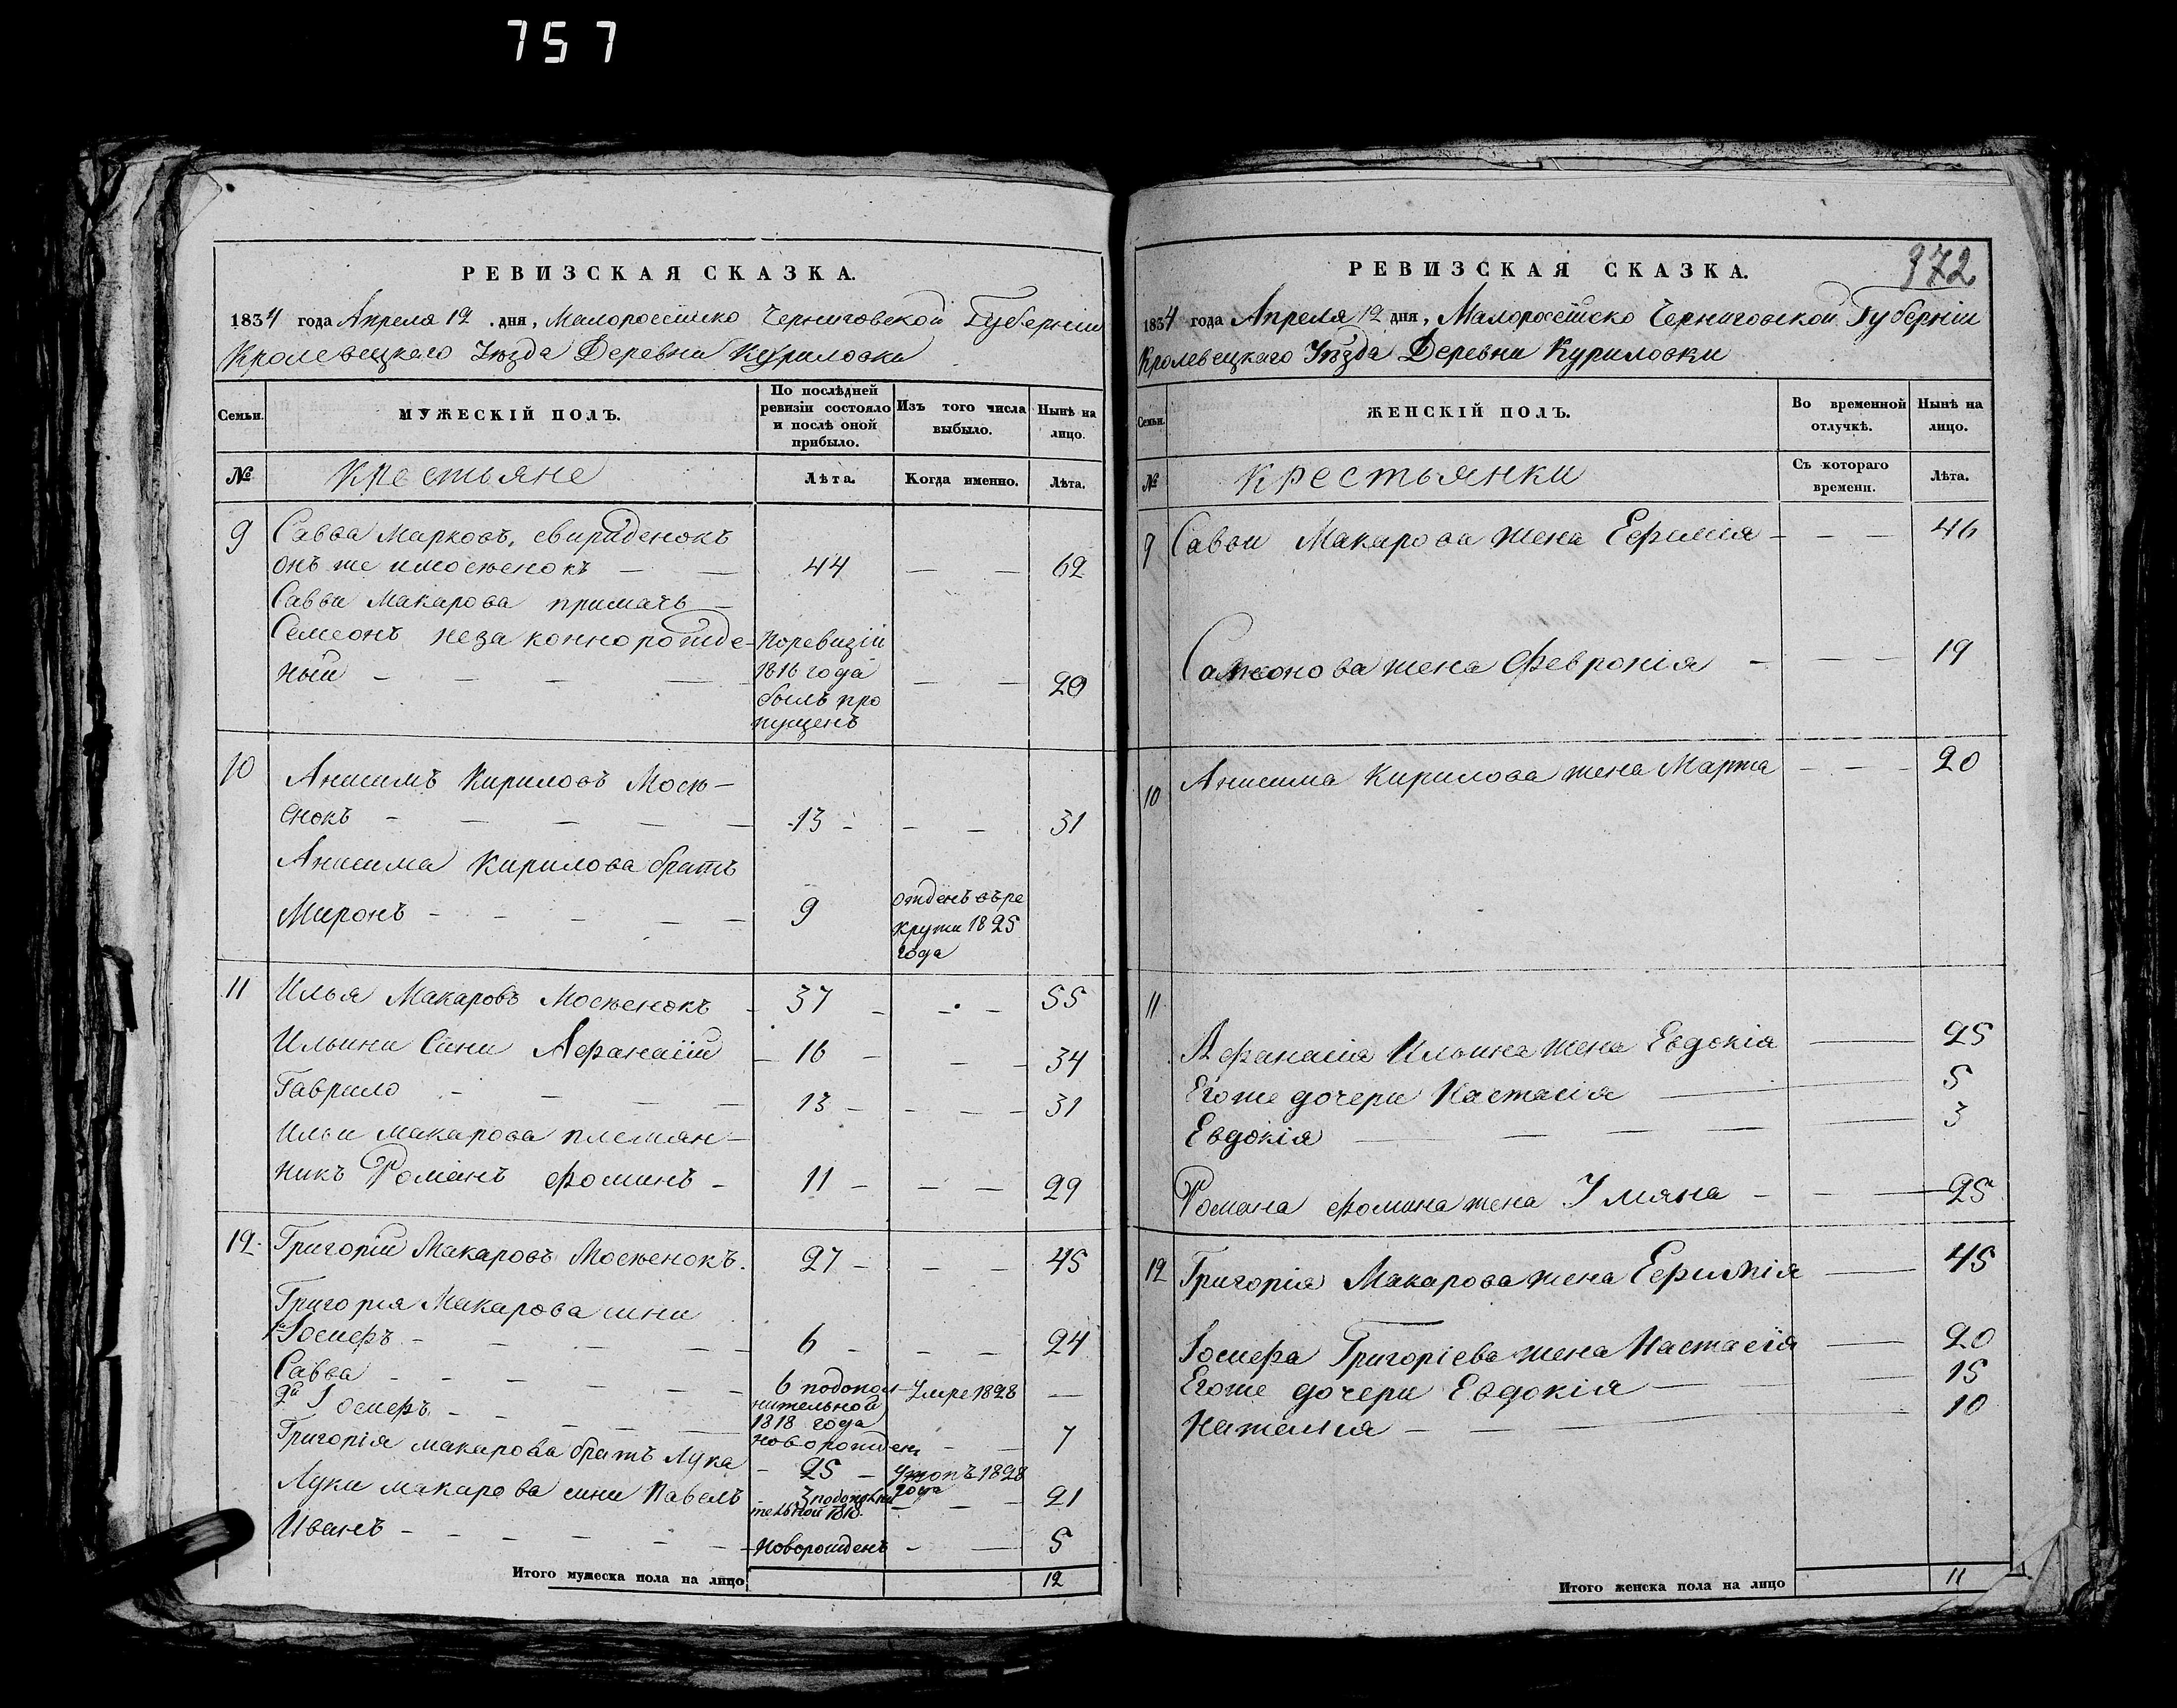 757
РЕВИЗСКАЯ СКАЗКА.
1834 года Апреля 12 дня, Малороссійско Черниговской Губерніи
Кролевецкаго Уѣзда Деревни Куриловки
Семьи.
МУЖЕСКІЙ ПОЛЪ.
По послѣдней ревизіи состояло и послѣ оной прибыло.
Изъ того числа выбыло.
Нынѣ на лицо.
№
Крестьяне
Лѣта.
Когда именно.
Лѣта.
9 Савва Марковъ, свириденокъ
онъ же имосѣенокъ — — 44 — — 62
Савви Макарова примачъ —
Семеонъ незаконнорожде-
ный — — — — — По ревизіи 1816 года былъ пропущенъ — — 20
10 Анисимъ Кириловъ Мосѣ-
енокъ — — — — — 13 — — — 31
Анисима Кирилова братъ
Миронъ — — — — — 9 отденъ въ рекрути 1825 года
11 Илья Макаровъ Мосѣенокъ — 37 — — — 55
Ильини Сини Афанасій — 16 — — — 34
Гаврило — — — — 13 — — — — 31
Ильи Макарова племян-
никъ Романъ Фоминъ — 11 — — — 29
12 Григорій Макаровъ Мосѣенокъ. 27 — — — 45
Григорія Макарова сини
1й Іосифъ — — — — — 6 — — — 24
Савва — — — — — — 6 подополнительной 1818 года Умре 1828 —
2й Іосифъ — — — — — новорожден — — 7
Григорія Макарова братъ Лука — 25 — Утопъ 1828 года
Луки Макарова сини Павелъ — 3 подополнительной 1818. — — — 21
Иванъ — — — — — — Новорожденъ — — 5
Итого мужеска пола на лицо 12
972
РЕВИЗСКАЯ СКАЗКА.
1834 года Апреля 12 дня, Малороссійско Черниговской Губерніи
Кролевецкаго Уѣзда Деревни Куриловки
Семьи.
ЖЕНСКІЙ ПОЛЪ.
Во временной отлучкѣ.
Нынѣ на лицо.
№
Крестьянки
Съ котораго времени.
Лѣта.
9 Савви Макарова жена Ефимія — — — 46
Самсонова жена Февронія — — — 19
10 Анисима Кирилова жена Марта — — — 20
11
Афанасія Ильина жена Евдокія — 25
Его же дочери Настасія — 5
Евдокія — — — — — 3
Романа Фомина жена Уляна — — — 25
12 Григорія Макарова жена Ефимія — 45
Іосифа Григоріева жена Настасія — 20
Его же дочери Евдокія — — 15
Наталія — — — — 10
Итого женска пола на лицо 11